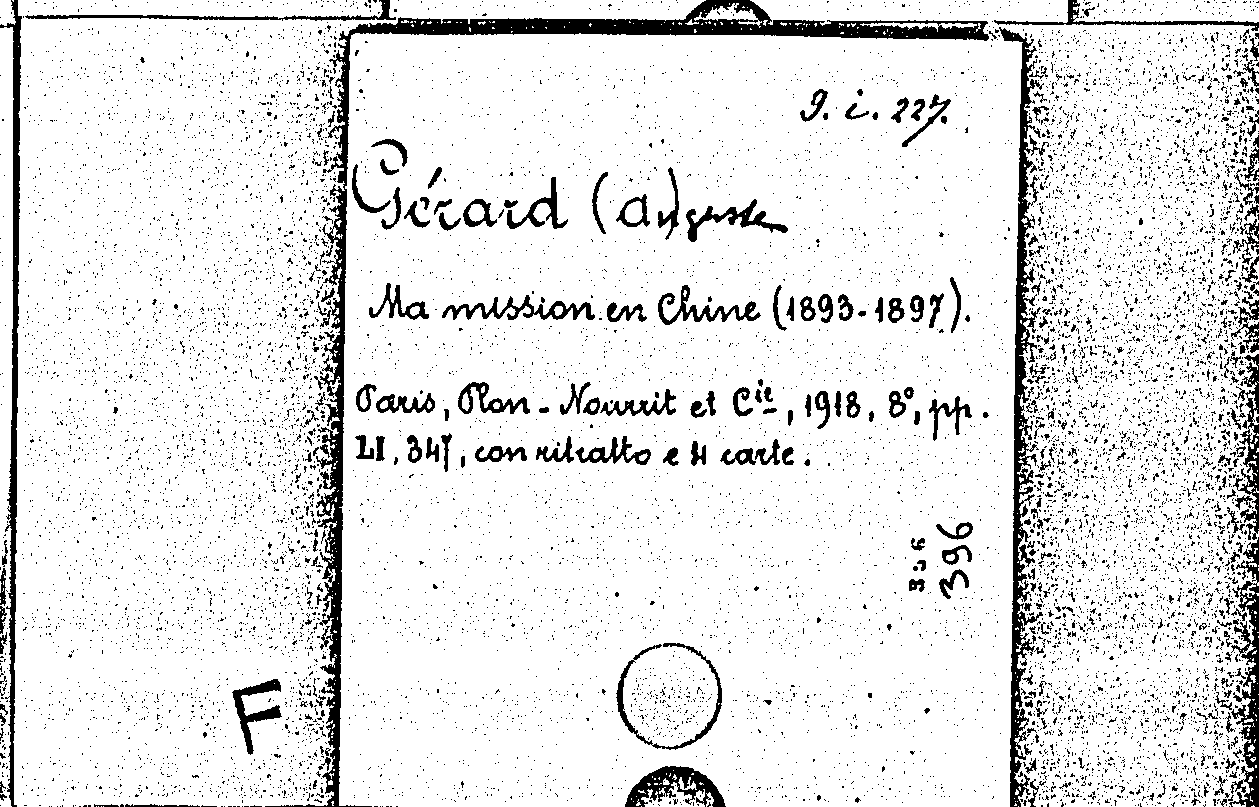 9. i. 227.
Gérard (Auguste
Ma mission en Chine (1893-1897).
Paris, Plon-Nourrit et Cie, 1918, 8°, pp.
LI, 347, con ritratto e 4 carte.
396
396
F